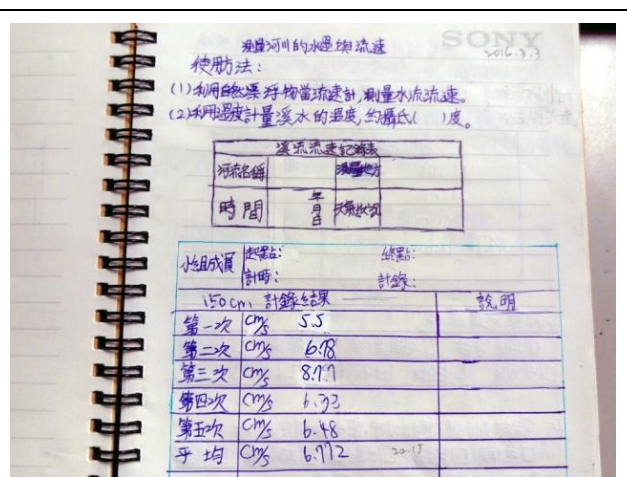 測量河川的水溫與流速
SONY
2016.3.3
使用方法：
(1)利用自然漂浮物當流速計,測量水流流速。
(2)利用溫度計量溪水的溫度,約攝氏( )度。
溪流流速紀錄表
河流名稱 測量地方
時間 年月日 天氣狀況
小組成員 起點: 終點:
計時: 計錄:
150cm, 計錄結果 說明
第一次 cm/s 5.5
第二次 cm/s 6.78
第三次 cm/s 8.77
第四次 cm/s 6.33
第五次 cm/s 6.48
平均 cm/s 6.772 22.15